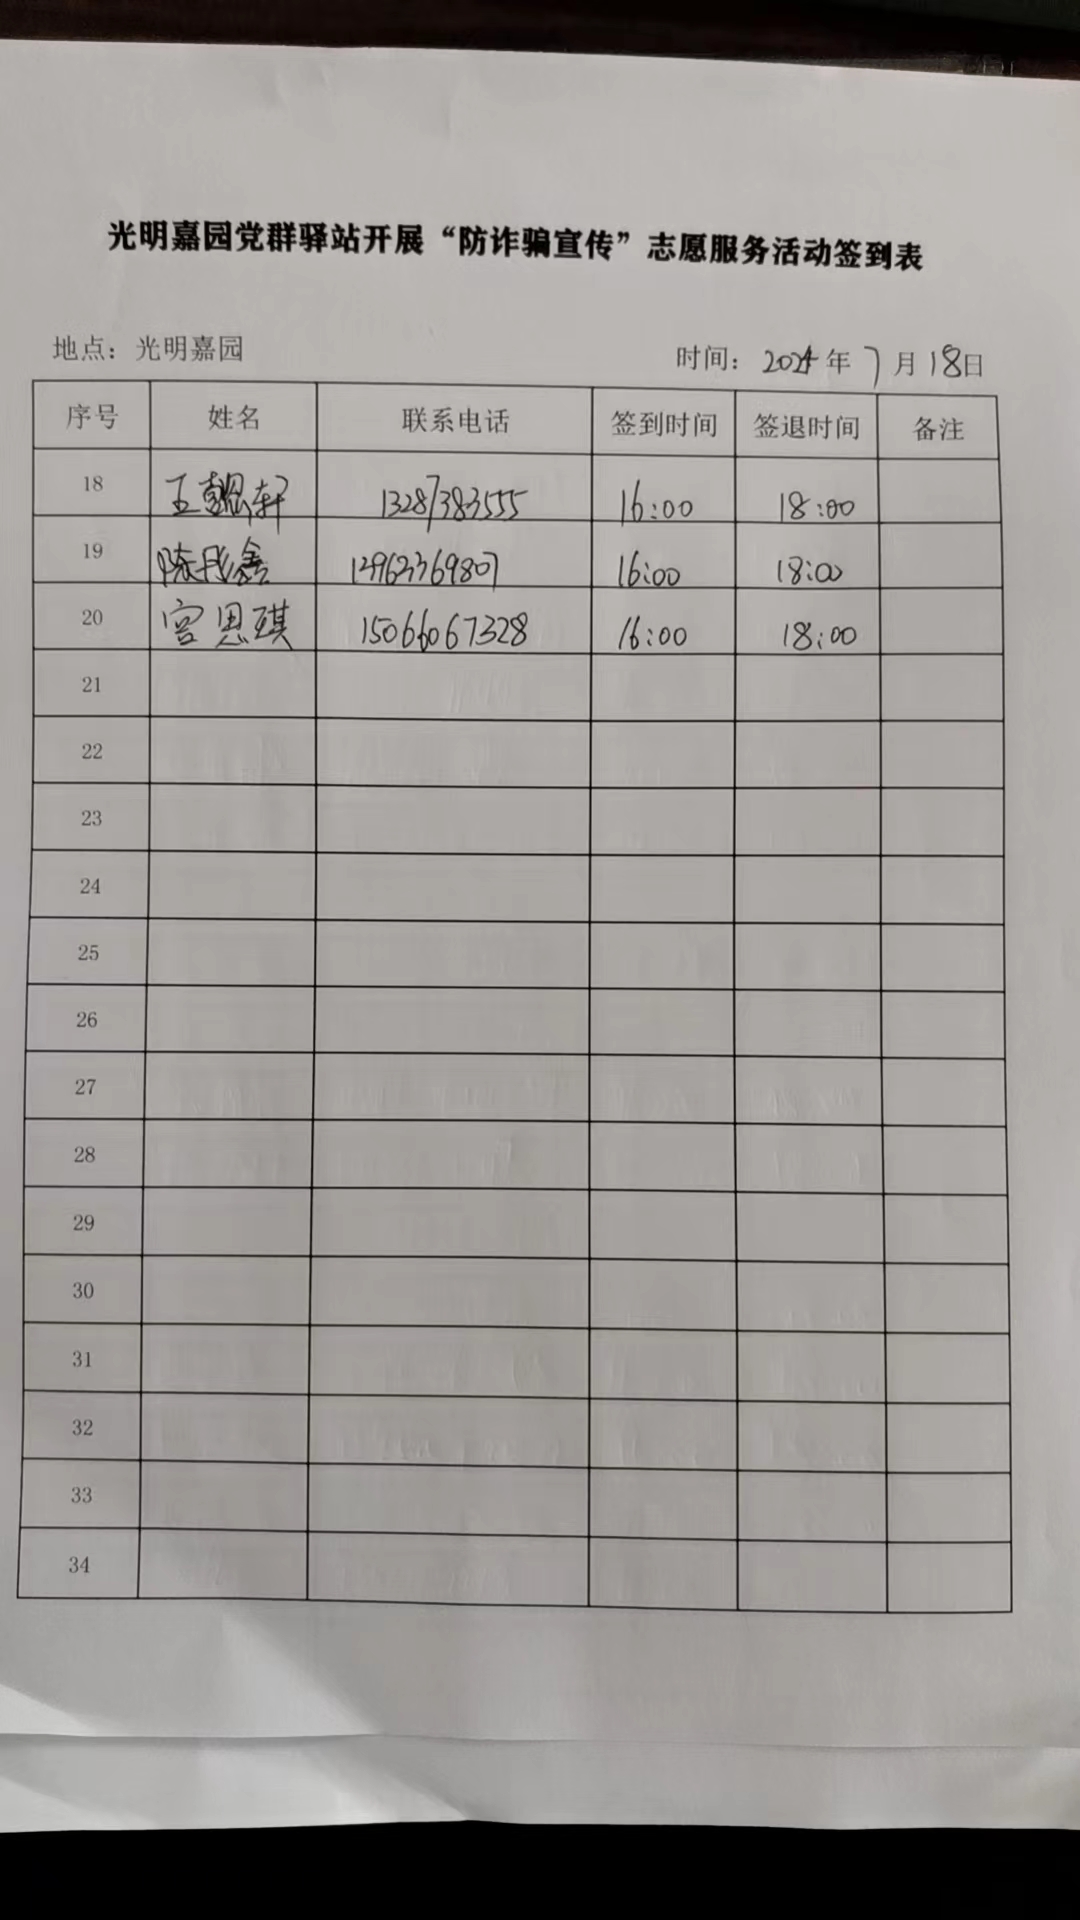 光明嘉园党群驿站开展“防诈骗宣传”志愿服务活动签到表
地点：光明嘉园 时间：2024年7月18日
序号 姓名 联系电话 签到时间 签退时间 备注
18 王懿轩 13287383555 16:00 18:00
19 陈彤鑫 16:00 18:00
20 宫思琪 15066067328 16:00 18:00
21
22
23
24
25
26
27
28
29
30
31
32
33
34